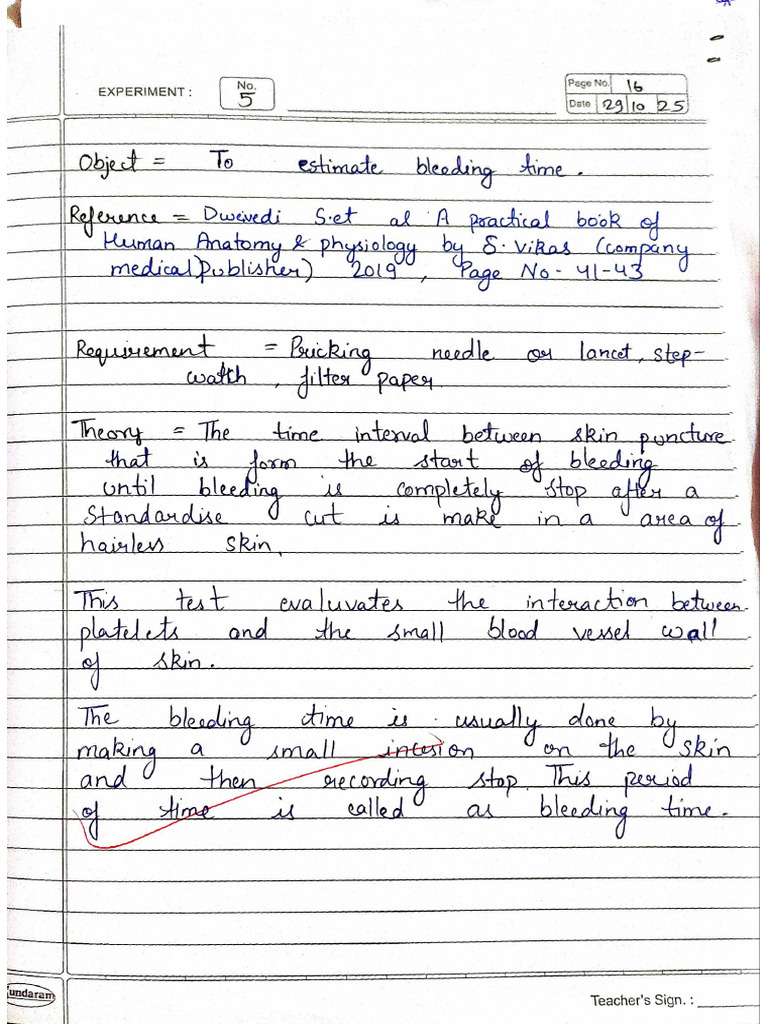 EXPERIMENT : No. 5
Page No. 16
Date 29 10 25
Object = To estimate bleeding time.
Reference = Dwevedi S.et al A practical book of
Human Anatomy & physiology by S. Vikas (company
medical publisher) 2019, Page No- 41-43
Requirement = Pricking needle or lancet, step-
watch, filter paper
Theory = The time interval between skin puncture
that is form the start of bleeding
until bleeding is completely stop after a
Standardise cut is make in a area of
hairless skin.
This test evaluvates the interaction between
platelets and the small blood vessel wall
of skin.
The bleeding time is usually done by
making a small incesion on the skin
and then recording stop. This period
of time is called as bleeding time.
undaram
Teacher's Sign. :